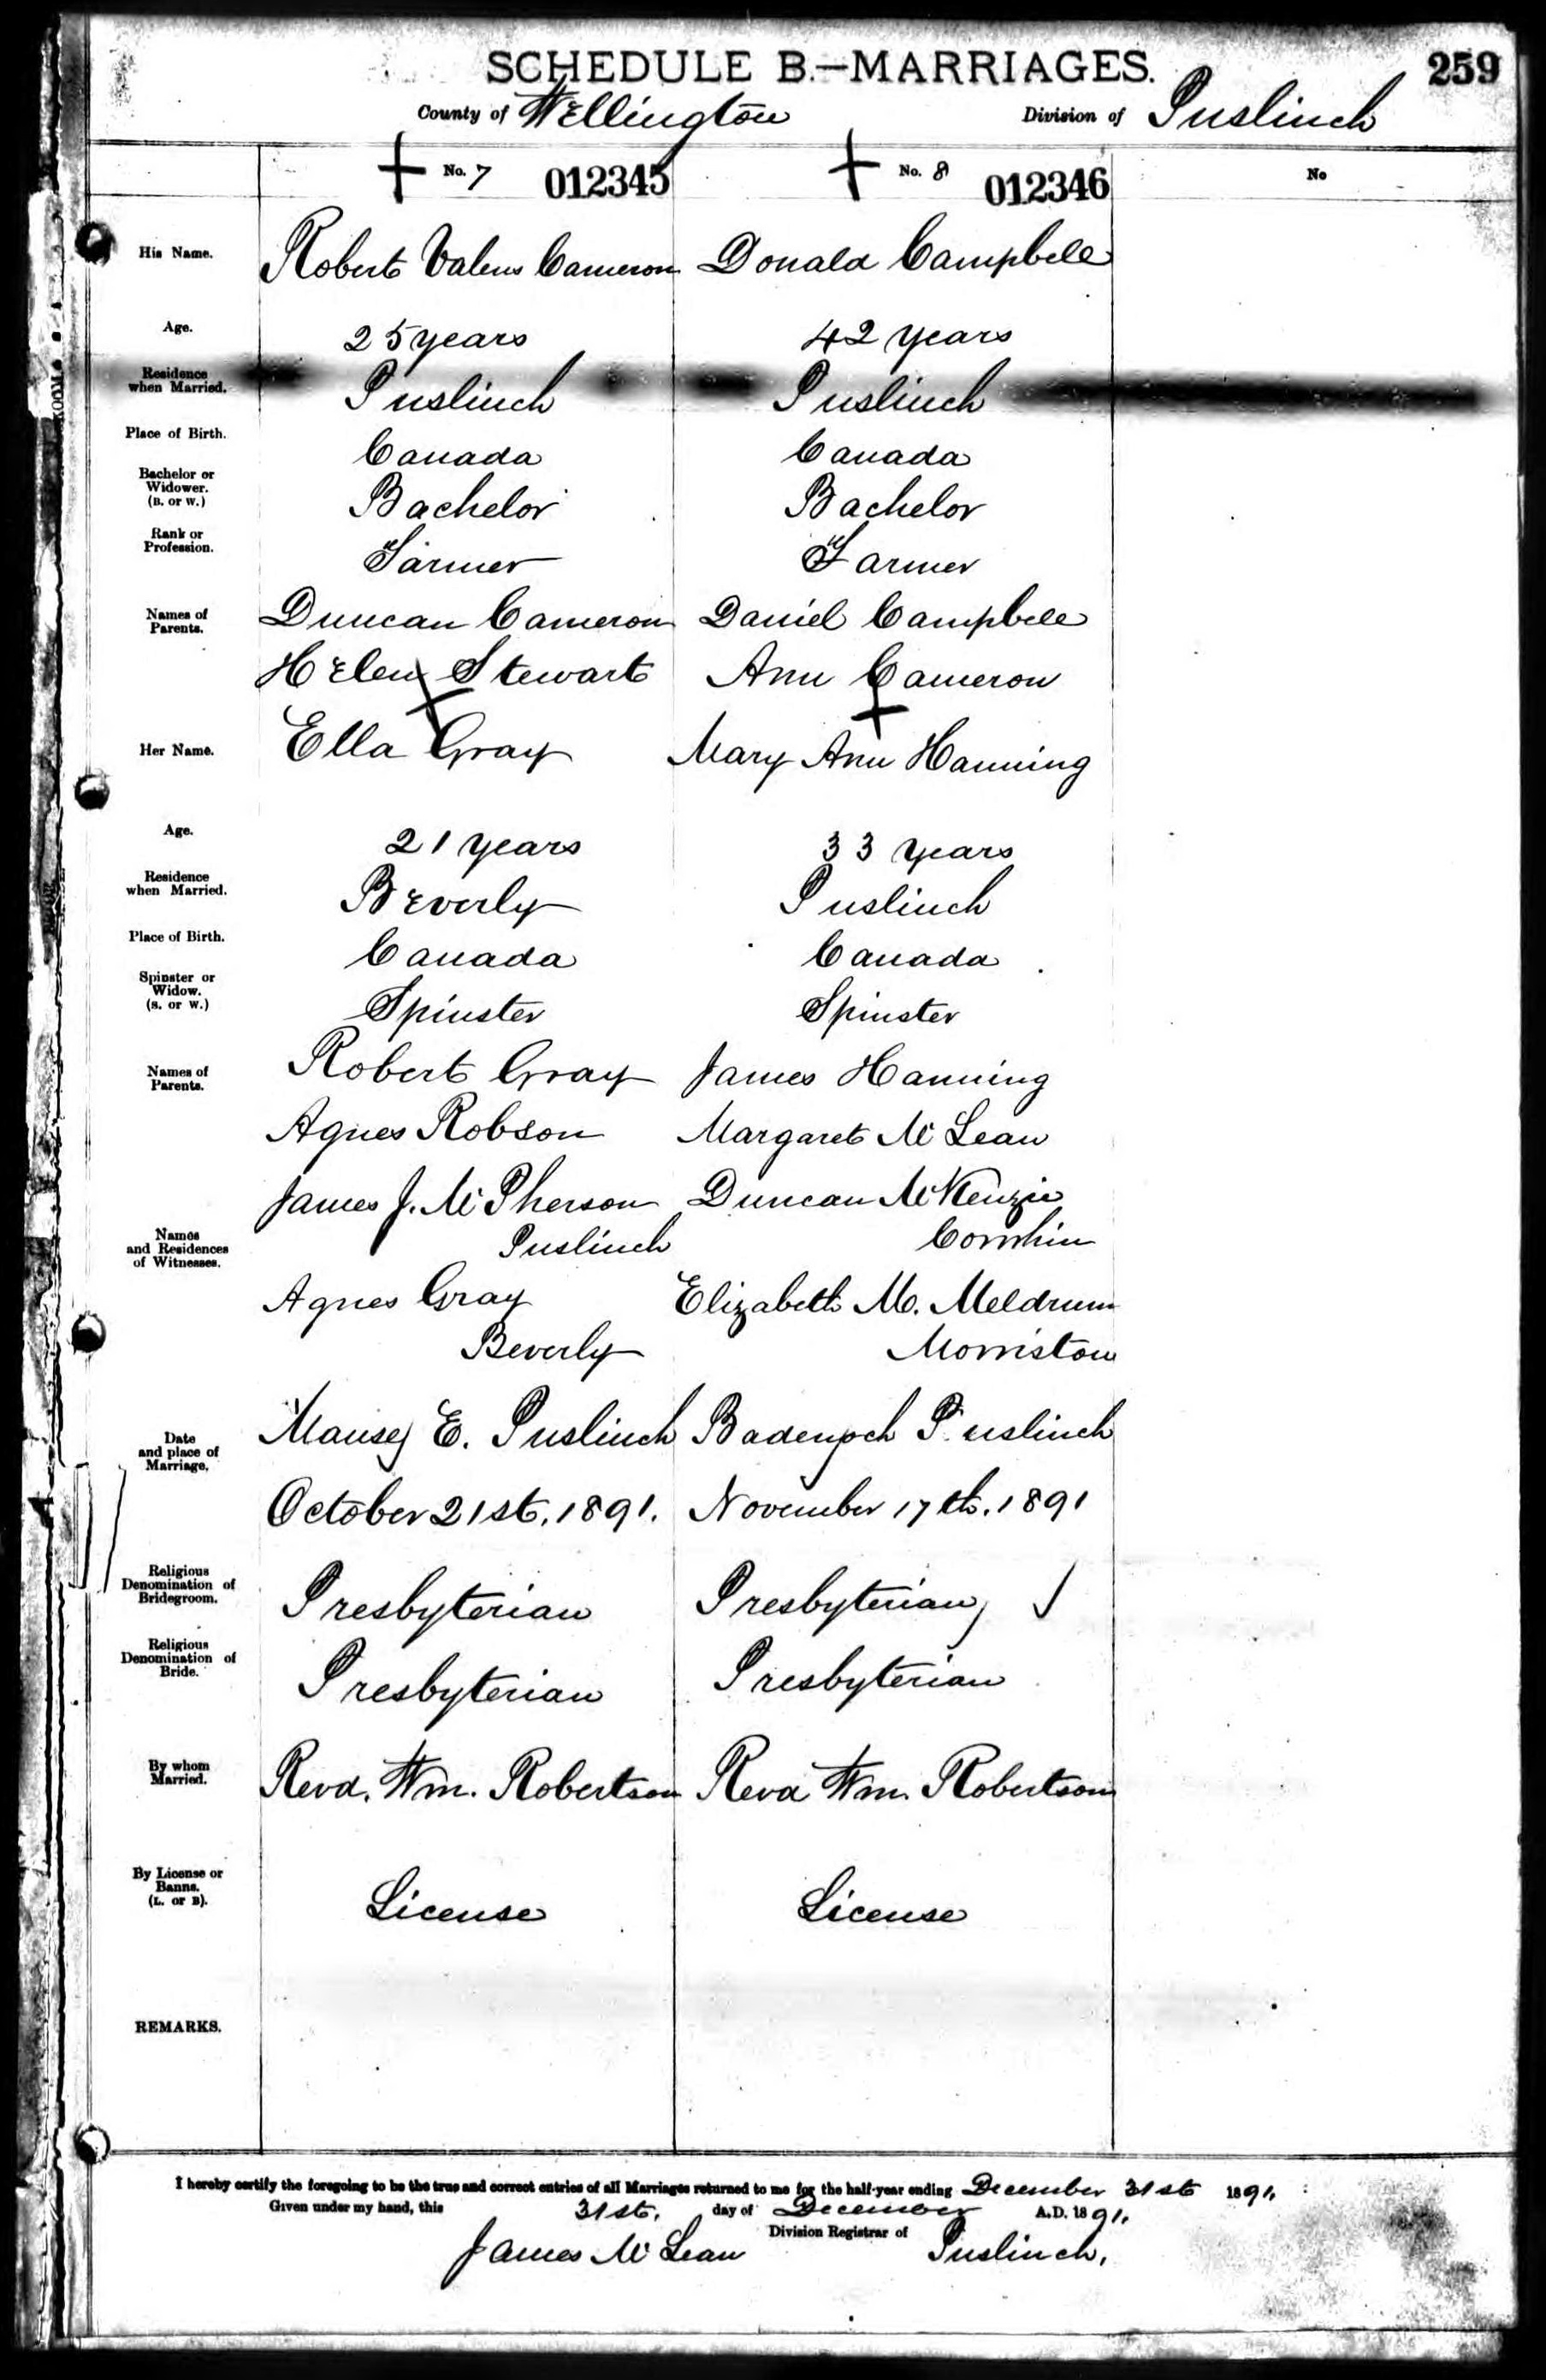 SCHEDULE B.—MARRIAGES. 259
County of Wellington Division of Puslinch
No. 7 012345 No. 8 012346 No
His Name. Robert Valens Cameron Donald Campbell
Age. 25 years 42 years
Residence when Married. Puslinch Puslinch
Place of Birth. Canada Canada
Bachelor or Widower. (B. or W.) Bachelor Bachelor
Rank or Profession. Farmer Farmer
Names of Parents. Duncan Cameron Daniel Campbell
Helen Stewart Ann Cameron
Her Name. Ella Gray Mary Ann Hanning
Age. 21 years 33 years
Residence when Married. Beverly Puslinch
Place of Birth. Canada Canada
Spinster or Widow. (S. or W.) Spinster Spinster
Names of Parents. Robert Gray James Hanning
Agnes Robson Margaret McLean
Names and Residences of Witnesses. James J. McPherson Duncan McKenzie
Puslinch Corwhin
Agnes Gray Elizabeth M. Meldrum
Beverly Morriston
Date and place of Marriage. Manse, E. Puslinch Badenoch Puslinch
October 21st. 1891. November 17th. 1891
Religious Denomination of Bridegroom. Presbyterian Presbyterian
Religious Denomination of Bride. Presbyterian Presbyterian
By whom Married. Revd. Wm. Robertson Revd Wm. Robertson
By License or Banns. (L. or B). License License
REMARKS.
I hereby certify the foregoing to be the true and correct entries of all Marriages returned to me for the half-year ending December 31st 1891.
Given under my hand, this 31st. day of December A.D. 1891.
James McLean Division Registrar of Puslinch.